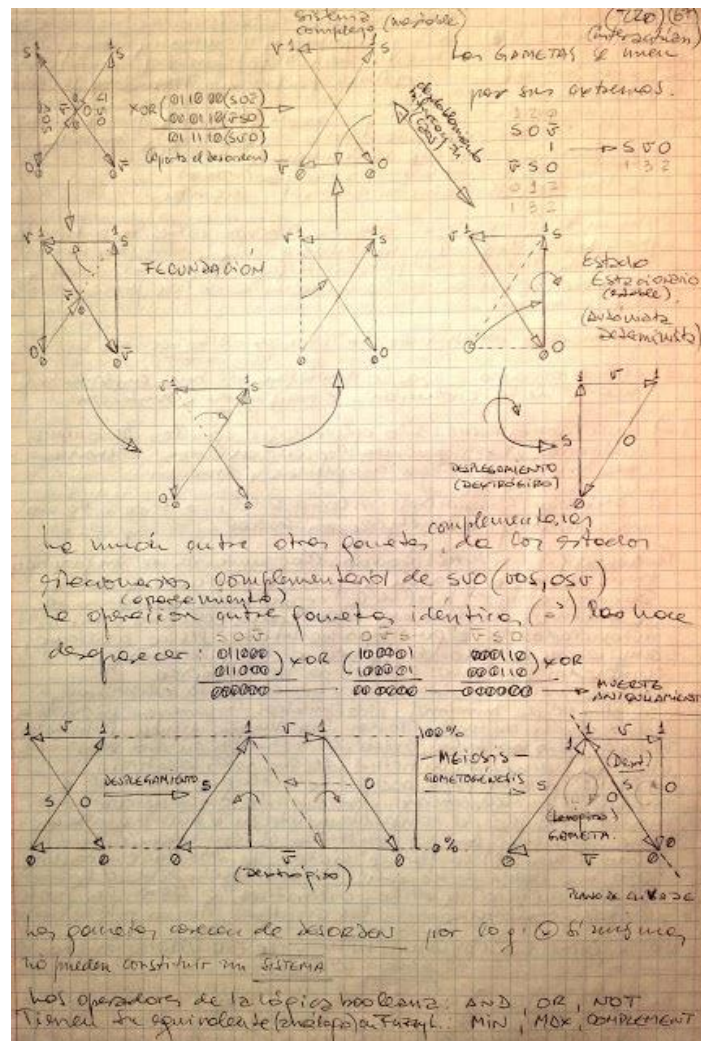 sistema
complejo (inestable)
(interacción)
Los GAMETAS se unen
por sus extremos.
XOR
011000 (SOV̅)
000110 (V̅SO)
011110 (SVO)
(aporta el desorden)
desdoblamiento
S O V̅
1
V̅ S O
0 1 2
1 3 2
S V̅ O
1 3 2
FECUNDACIÓN
Estado
Estacionario
(estable)
(Autómata
determinista)
DESPLEGAMIENTO
(DEXTRÓGIRO)
complementarios
La unión entre otros gametos, da los estados
estacionarios complementarios de SVO (VOS, OSV)
(apareamiento)
La operación entre gametos idénticos (=) los hace
desaparecer:
S O V̅
O V̅ S
V̅ S O
011000
011000
) XOR
(100001
100001
000110
000110
) XOR
000000
000000
000000
MUERTE
ANIQUILAMIENTO
DESPLEGAMIENTO
(Dextrógiro)
100%
— MEIOSIS —
GAMETOGÉNESIS
0%
(Dext)
(Levógiro)
GAMETA
PLANO DE CLIVAJE
Los gametos carecen de DESORDEN por log. @ Si mismos
no pueden constituir un SISTEMA
Los operadores de la lógica booleana: AND, OR, NOT
Tienen su equivalente (análogo) en Fuzzy L.: MIN, MAX, COMPLEMENT